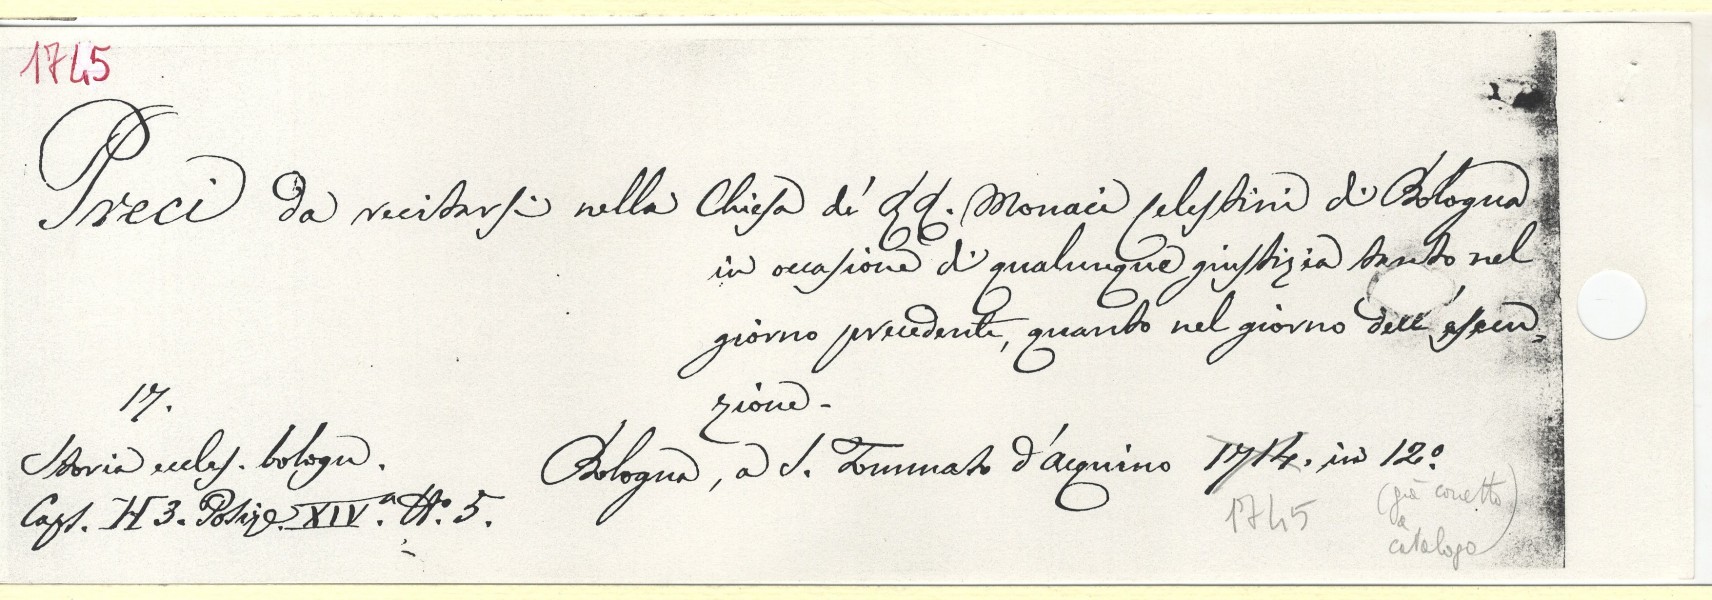 1745
Preci da recitarsi nella Chiesa de' RR. Monaci Celestini di Bologna
in occasione di qualunque giustizia tanto nel
giorno precedente, quanto nel giorno dell' esecu-
zione.
17.
Storia eccles. bologn.
Caps. H 3. Poliz. XIV.a N.o 5.
Bologna, a S. Tommaso d'Acquino 1714. in 12o.
1745
(già corretto
a
catalogo)